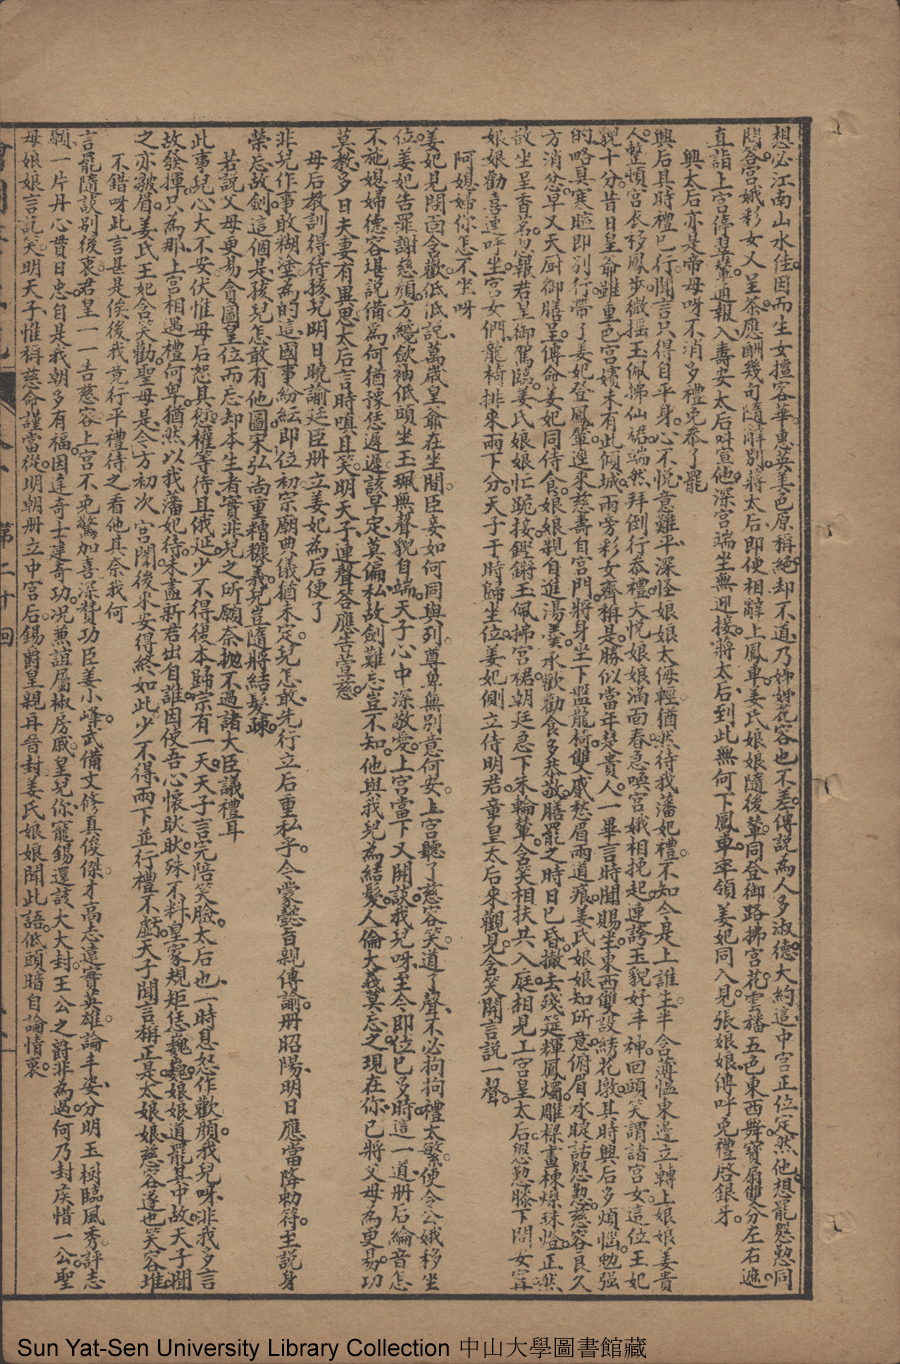 想必江南山水佳因而生女擅客華惠英美色原稱絕却不道乃姊妹花容也不差傳說為人多淑德大約這中宮正位定然他想罷慇懃同
悶答宮娥彩女又呈茶應酬幾句隨辭別將太后即便相辭上鳳車姜氏娘娘隨後輦同登御路拂宮花雲旛五色東西舞寶扇雙分左右遮
直詣上宮停羣輦道報入壽安太后叫宣他深宮端坐無迎接將太后到此無何下鳳車率領姜妃同入見張娘娘傳呼免禮啓銀牙
興太后亦是帝母呀不消多禮免叅了罷
興后其時禮已行聞言只得自平身心不悅意難平深怪娘娘太侮輕猶然待我藩妃禮不知今是上誰主半含薄慍東邊立轉上娘娘姜貴
人整頓宮衣移鳳步微搖玉佩拂仙裙端然拜倒行叅禮大悅娘娘滿面春急喚宮娥相挽起連誇玉貌好丰神回頭笑謂諸宮女這位王妃
貌十分昔日皇爺雖重色宮嬪未有此傾城兩旁彩女齊稱是勝似當年楚貴人一畢言時聞賜坐東西雙設綉花墩其時興后多煩惱勉强
的略具寒暄即別行帶了姜妃登鳳輦進來慈壽自宮門將身坐下盤龍椅雙感愁眉兩道痕姜氏娘娘知所意俯眉水睩話慇懃慈容良久
方消忿早又天厨御膳呈傳命姜妃同侍食娘娘親自進湯羹水歡勸食多恭敬膳罷之時日已昏撤去殘筵輝鳳燭雕樑畫棟燦珠燈正然
散坐呈香茗忽報若皇御駕臨姜氏娘娘忙跪接鏗鏘玉佩拂宮裙朝廷急下朱輪輦含笑相扶共入庭相見上宮皇太后慇懃膝下問女宜
娘娘勸喜連呼坐宮女們龍椅排來兩下分天子于時歸坐位姜妃側立侍明君章皇太后來觀見含笑開言說一聲
阿媳婦你怎不坐呀
姜妃見問面含歡低低說萬歲皇爺在坐間臣妾如何同與列尊卑無別意何安上宮聽了慈容笑道了聲不必拘拘禮太繁便令公娥移坐
位姜妃告罪謝慈顏方纔歛袖低頭坐玉珮無聲貌自端天子心中深敬愛上宮當下又開談我兒呀至今即位已多時這一道册后綸音怎
不施媳婦德容堪說備為何猶豫恁遲遲該早定莫偏私故劍難忘豈不知他與我兒為結髮人倫大義莫忘之現在你已將父母為更易功
莫教多日夫妻有異思太后言時嗔且笑明天子連聲答應告萱慈
母后教訓得待孩兒明日曉諭廷臣册立姜妃為后便了
非兒作事敢糊塗為的這國事紛紜即位初宗廟典儀猶未定兒怎敢先行立后重私乎今蒙懿旨親傳諭册昭陽明日應當降勅符至說身
榮忘故劍這個是孩兒怎敢有他圖宋弘尚重糟糠義兒豈隨將結髮疎
若說父母更易貪圖皇位而忘却本生者實非兒之所願奈拋不過諸大臣議禮耳
此事兒心大不安伏惟母后恕其愆權等侍且俄延少不得復本歸宗有一天天子言完陪笑臉太后也一時息怒作歡顏我兒呀非我多言
故發揮只為那上宮相遇禮何卑猶然以我藩妃待未盡新君出自誰因使吾心懷耿耿殊不料皇家規矩恁巍巍娘娘道罷其中故天子聞
之亦皺眉姜氏王妃含笑勸聖母是今方初次宮闈後來安得終如此少不得兩下並行禮不虧天子聞言稱正是太娘娘慈容遂也笑容堆
不錯呀此言甚是俟後我竟行平禮待之看他其奈我何
言罷隨談別後衷君皇一一告慈容上宮不免驚加喜深贊功臣姜小峰武備文修真俊傑才高志遠實英雄論丰姿分明玉樹臨風秀評志
願一片丹心貫日忠自是我朝多有福因逢奇士建奇功况兼誼屬椒房戚皇兒你寵錫還該大大封王公之爵非為過何乃封侯惜一公聖
母娘娘言訖笑明天子惟稱慈命謹當從明朝册立中宮后錫爵皇親再晉封姜氏娘娘聞此語低頭暗自論情衷
第二十回
Sun Yat-Sen University Library Collection 中山大學圖書館藏